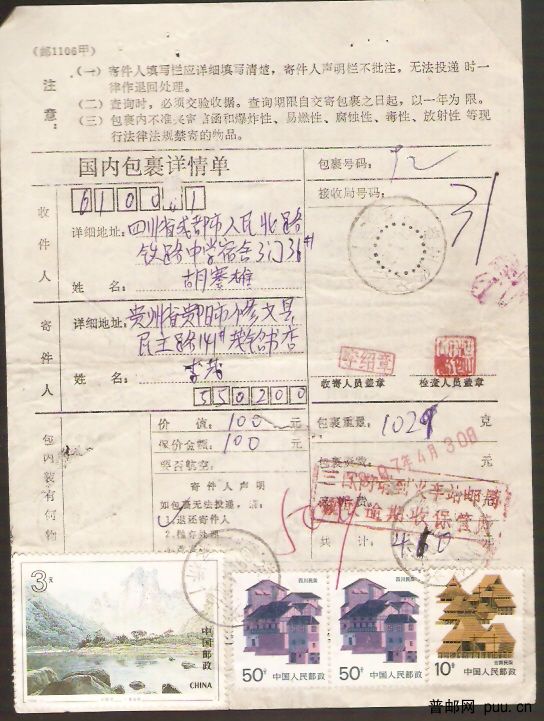 (邮1106甲)
注意:
(一)寄件人填写栏应详细填写清楚,寄件人声明栏不批注,无法投递时一
律作退回处理。
(二)查询时,必须交验收据。查询期限自交寄包裹之日起,以一年为限。
(三)包裹内不准夹寄信函和爆炸性、易燃性、腐蚀性、毒性、放射性等现
行法律法规禁寄的物品。
国内包裹详情单
包裹号码:
92
接收局号码:
31
收件人
详细地址:四川省成都市人民北路
铁路中学宿舍3门36#
姓名:胡寒雄
寄件人
详细地址:贵州省贵阳市修文县
民主路141#
姓名:李茂
550200
李绍章
收寄人员盖章
检查人员盖章
包内装有何物
价值:100元
保价金额:100元
要否航空:
包裹重量:1029克
寄件人声明
如包裹无法投递,请:
1.退还寄人
97年4月30日
三日内请到火车站邮局
逾期收保管费
共计:4.60元
3元
中国邮政
CHINA
四川民居
50分
中国人民邮政
四川民居
50分
中国人民邮政
云南民居
10分
中国人民邮政
普邮网 puu.cn